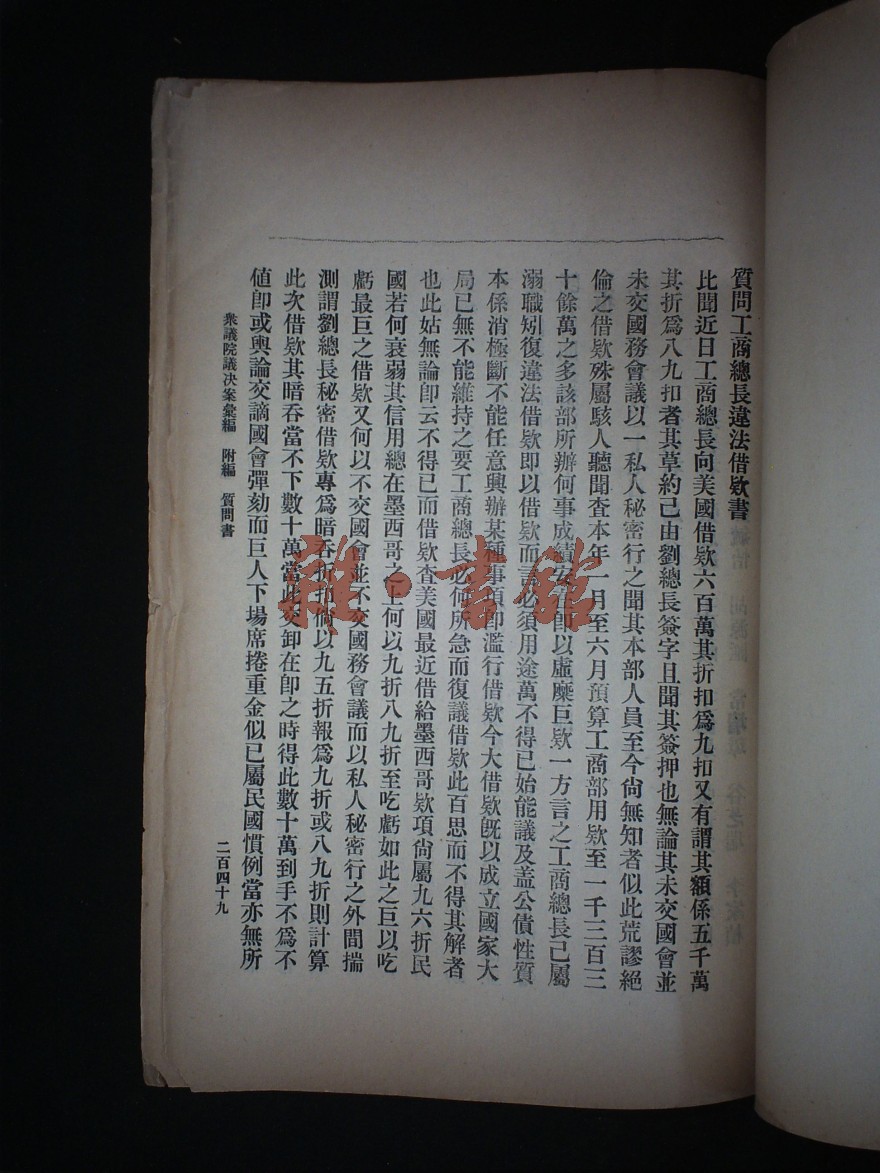 質問工商總長違法借欵書
比聞近日工商總長向美國借欵六百萬其折扣爲九扣又有謂其額係五千萬
其折爲八九扣者其草約已由劉總長簽字且聞其簽押也無論其未交國會並
未交國務會議以一私人秘密行之聞其本部人員至今尙無知者似此荒謬絕
倫之借欵殊屬駭人聽聞查本年一月至六月預算工商部用欵至一千三百三
十餘萬之多該部所辦何事成績安在卽以虛糜巨欵一方言之工商總長已屬
溺職矧復違法借欵卽以借欵而言必須用途萬不得已始能議及盖公債性質
本係消極斷不能任意興辦某種事項卽濫行借欵今大借欵旣以成立國家大
局已無不能維持之要工商總長必何所急而復議借欵此百思而不得其解者
也此姑無論卽云不得已而借欵査美國最近借給墨西哥欵項尙屬九六折民
國若何衰弱其信用總在墨西哥之上何以九折八九折至吃虧如此之巨以吃
虧最巨之借欵又何以不交國會並不交國務會議而以私人秘密行之外間揣
測謂劉總長秘密借欵專爲暗吞折扣倘以九五折報爲九折或八九折則計算
此次借欵其暗吞當不下數十萬當此交卸在卽之時得此數十萬到手不爲不
値卽或輿論交謫國會彈劾而巨人下場席捲重金似已屬民國慣例當亦無所
衆議院議决案彙編　附編　質問書
二百四十九
雜·書館